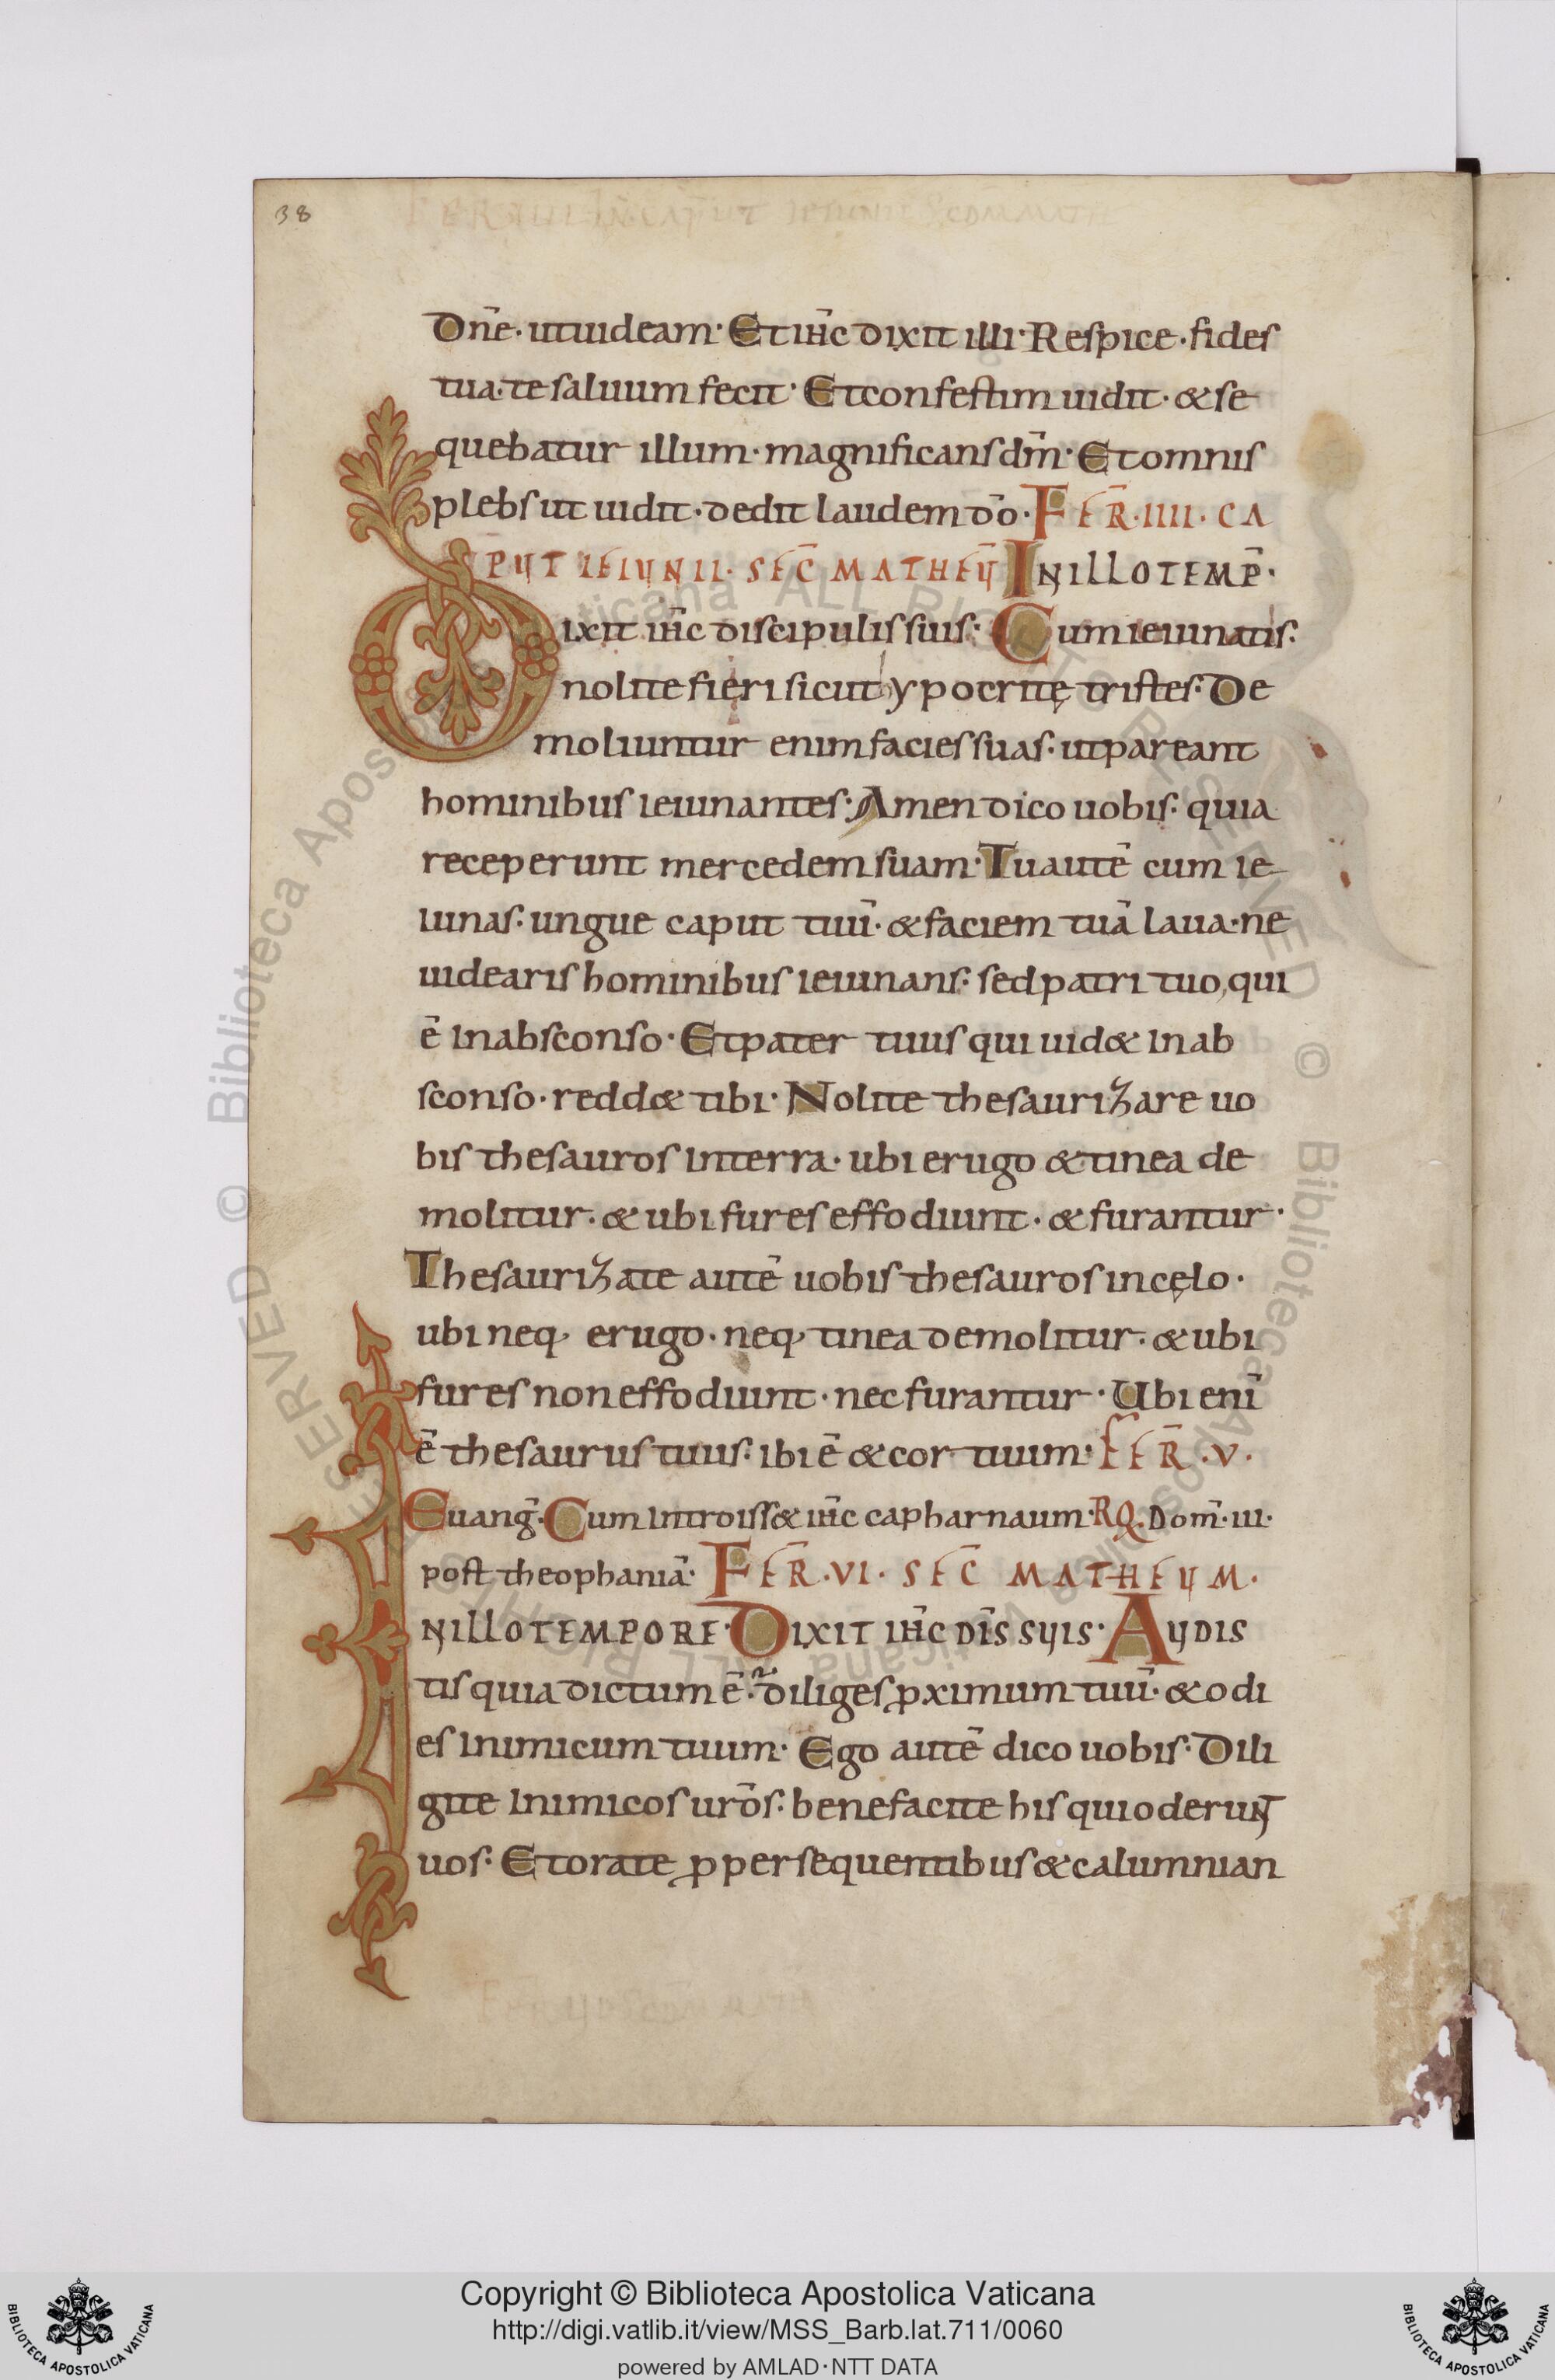 38
Dn̄e· ut uideam· Et ih̄c dixit illi· Respice· fides
tua· te saluum fecit· Et confestim uidit· & se
quebatur illum· magnificans dm̄· Et omnis
plebs ut uidit· dedit laudem dō· FER̄· IIII· CA
PUT IEIUNII· SEC̄ MATHEŪ IN ILLO TEMP̄·
Dixit ih̄c discipulis suis· Cum ieiunatis·
nolite fieri sicut hypocritę tristes· De
moliuntur enim facies suas· ut pareant
hominibus ieiunantes· Amen dico uobis· quia
receperunt mercedem suam· Tu autē cum ie
iunas· ungue caput tuū· & faciem tuā laua· ne
uidearis hominibus ieiunans· sed patri tuo, qui
ē in absconso· Et pater tuus qui uid& in ab
sconso· redd& tibi· Nolite thesaurizare uo
bis thesauros in terra· ubi erugo & tinea de
molitur· & ubi fures effodiunt· & furantur·
Thesaurizate autē uobis thesauros in cęlo·
ubi neq; erugo· neq; tinea demolitur· & ubi
fures non effodiunt· nec furantur· Ubi enī
ē thesaurus tuus· ibi ē & cor tuum· FER̄· V·
Euanḡ· Cum introiss& ih̄c capharnaum· RQ. Dom̄· III·
post theophaniā· FER̄· VI· SEC̄ MATHEUM·
IN ILLO TEMPORE· DIXIT IH̄C DIS̄ SUIS· AUDIS
tis quia dictum ē· diliges ꝓximum tuū· & odi
es inimicum tuum· Ego autē dico uobis· Dili
gite inimicos urōs· benefacite his qui oderunt
uos· Et orate ꝓ persequentibus & calumnian
© Biblioteca Apostolica Vaticana ALL RIGHTS RESERVED
Copyright © Biblioteca Apostolica Vaticana
http://digi.vatlib.it/view/MSS_Barb.lat.711/0060
powered by AMLAD·NTT DATA
BIBLIOTECA APOSTOLICA VATICANA
BIBLIOTECA APOSTOLICA VATICANA